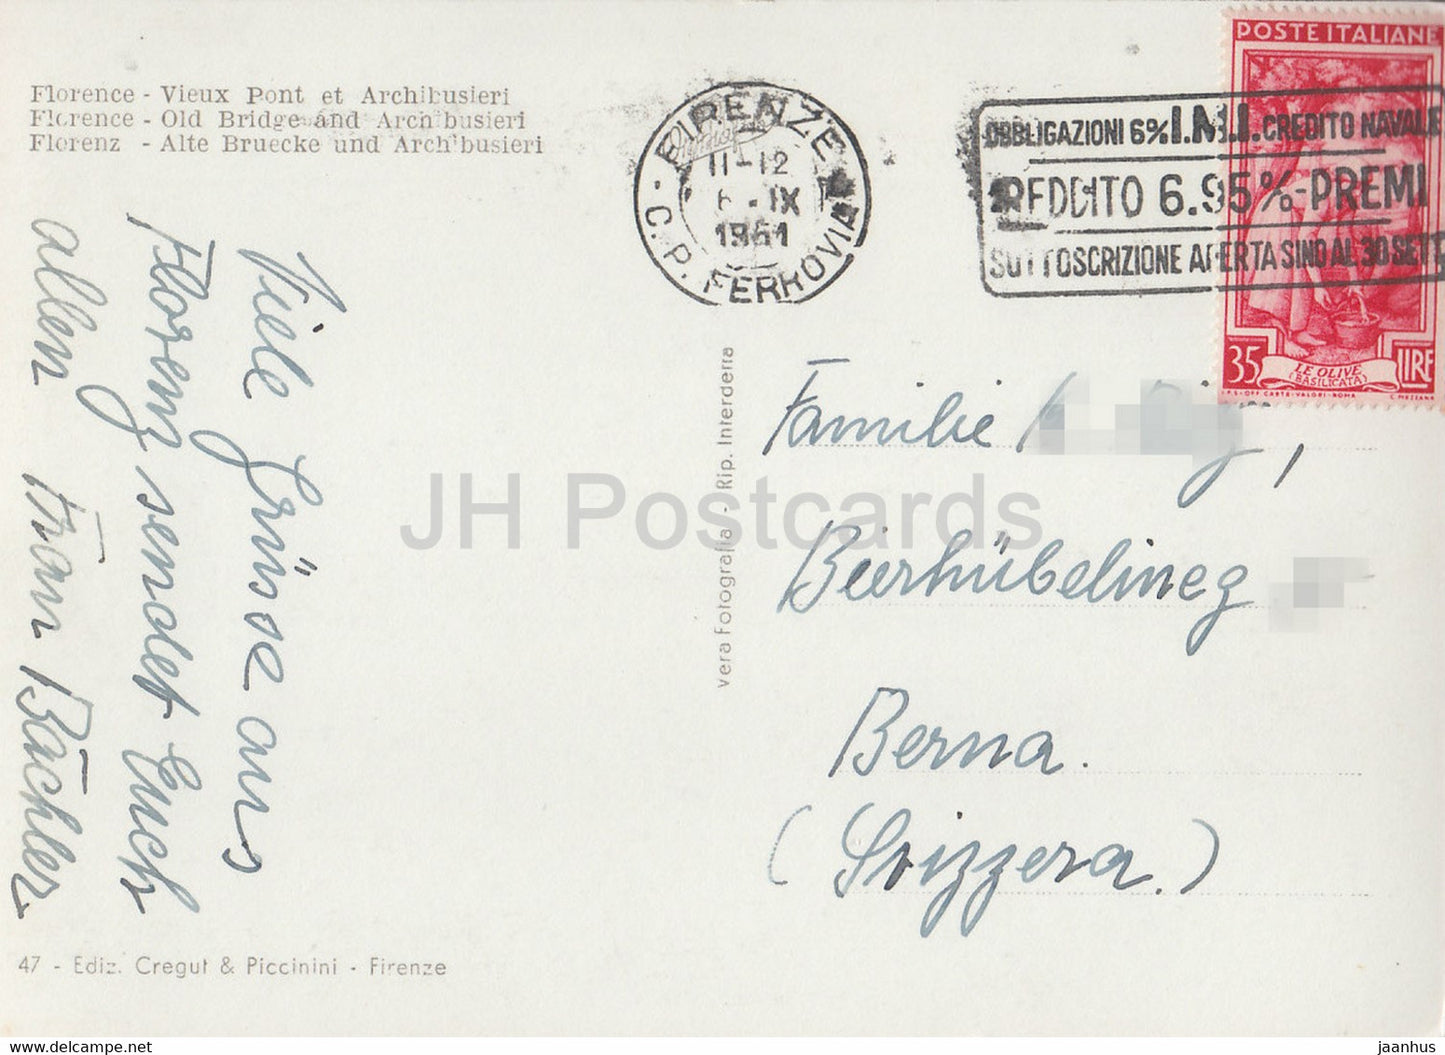 Florence - Vieux Pont et Archibusieri
Florence - Old Bridge and Archibusieri
Florenz - Alte Bruecke und Archibusieri
FIRENZE
11-12
6 . IX
1951
C.P. FERROVIA
OBBLIGAZIONI 6% I.M.I. CREDITO NAVALE
REDDITO 6.95%-PREMI
SOTTOSCRIZIONE APERTA SINO AL 30 SETT
POSTE ITALIANE
35 LE OLIVE LIRE
(BASILICATA)
I.P.S-OFF. CARTE-VALORI-ROMA C. MEZZANA
Viele Grüsse aus
Florenz sendet Euch
allen Frau Bächler
vera Fotografia - Rip. Interdetta
Familie
Bierhübelineg
Berna.
(Svizzera.)
JH Postcards
47 - Ediz. Cregut & Piccinini - Firenze
www.delcampe.net
jaanhus